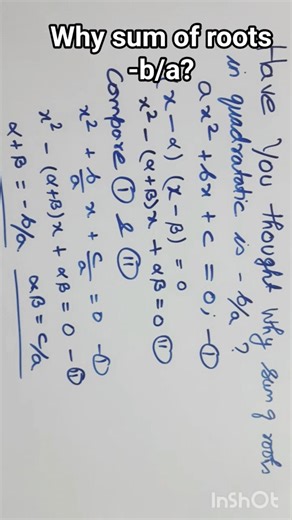 Why sum of roots
-b/a?
Have You thought why sum of roots
in quadratatic is - b/a ?
ax² + bx + c = 0; - ①
x - α) (x - β) = 0
x² - (α+β)x + αβ = 0 ⑪
Compare ① & ⑪
x² + b/a x + c/a = 0 - ①
x² - (α+β)x + αβ = 0 - ⑪
α+β = -b/a αβ = c/a
InShOt